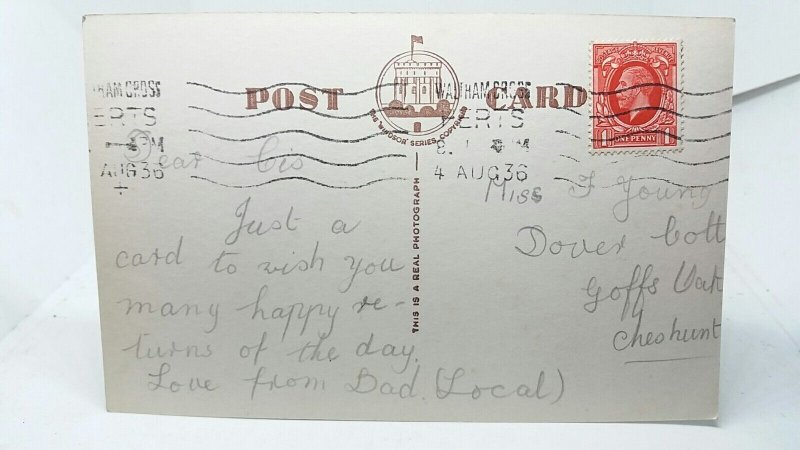 POST CARD
THE "WINDSOR" SERIES, COPYRIGHT
POSTAGE REVENUE
1 1
ONE PENNY
THAM CROSS
ERTS
PM
AUG 36
WALTHAM CROSS
HERTS
PM
4 AUG 36
THIS IS A REAL PHOTOGRAPH
Dear Cis
Just a
card to wish you
many happy re-
turns of the day.
Love from Dad. (Local)
Miss F Young
Dover Cott
Goffs Oak
Cheshunt